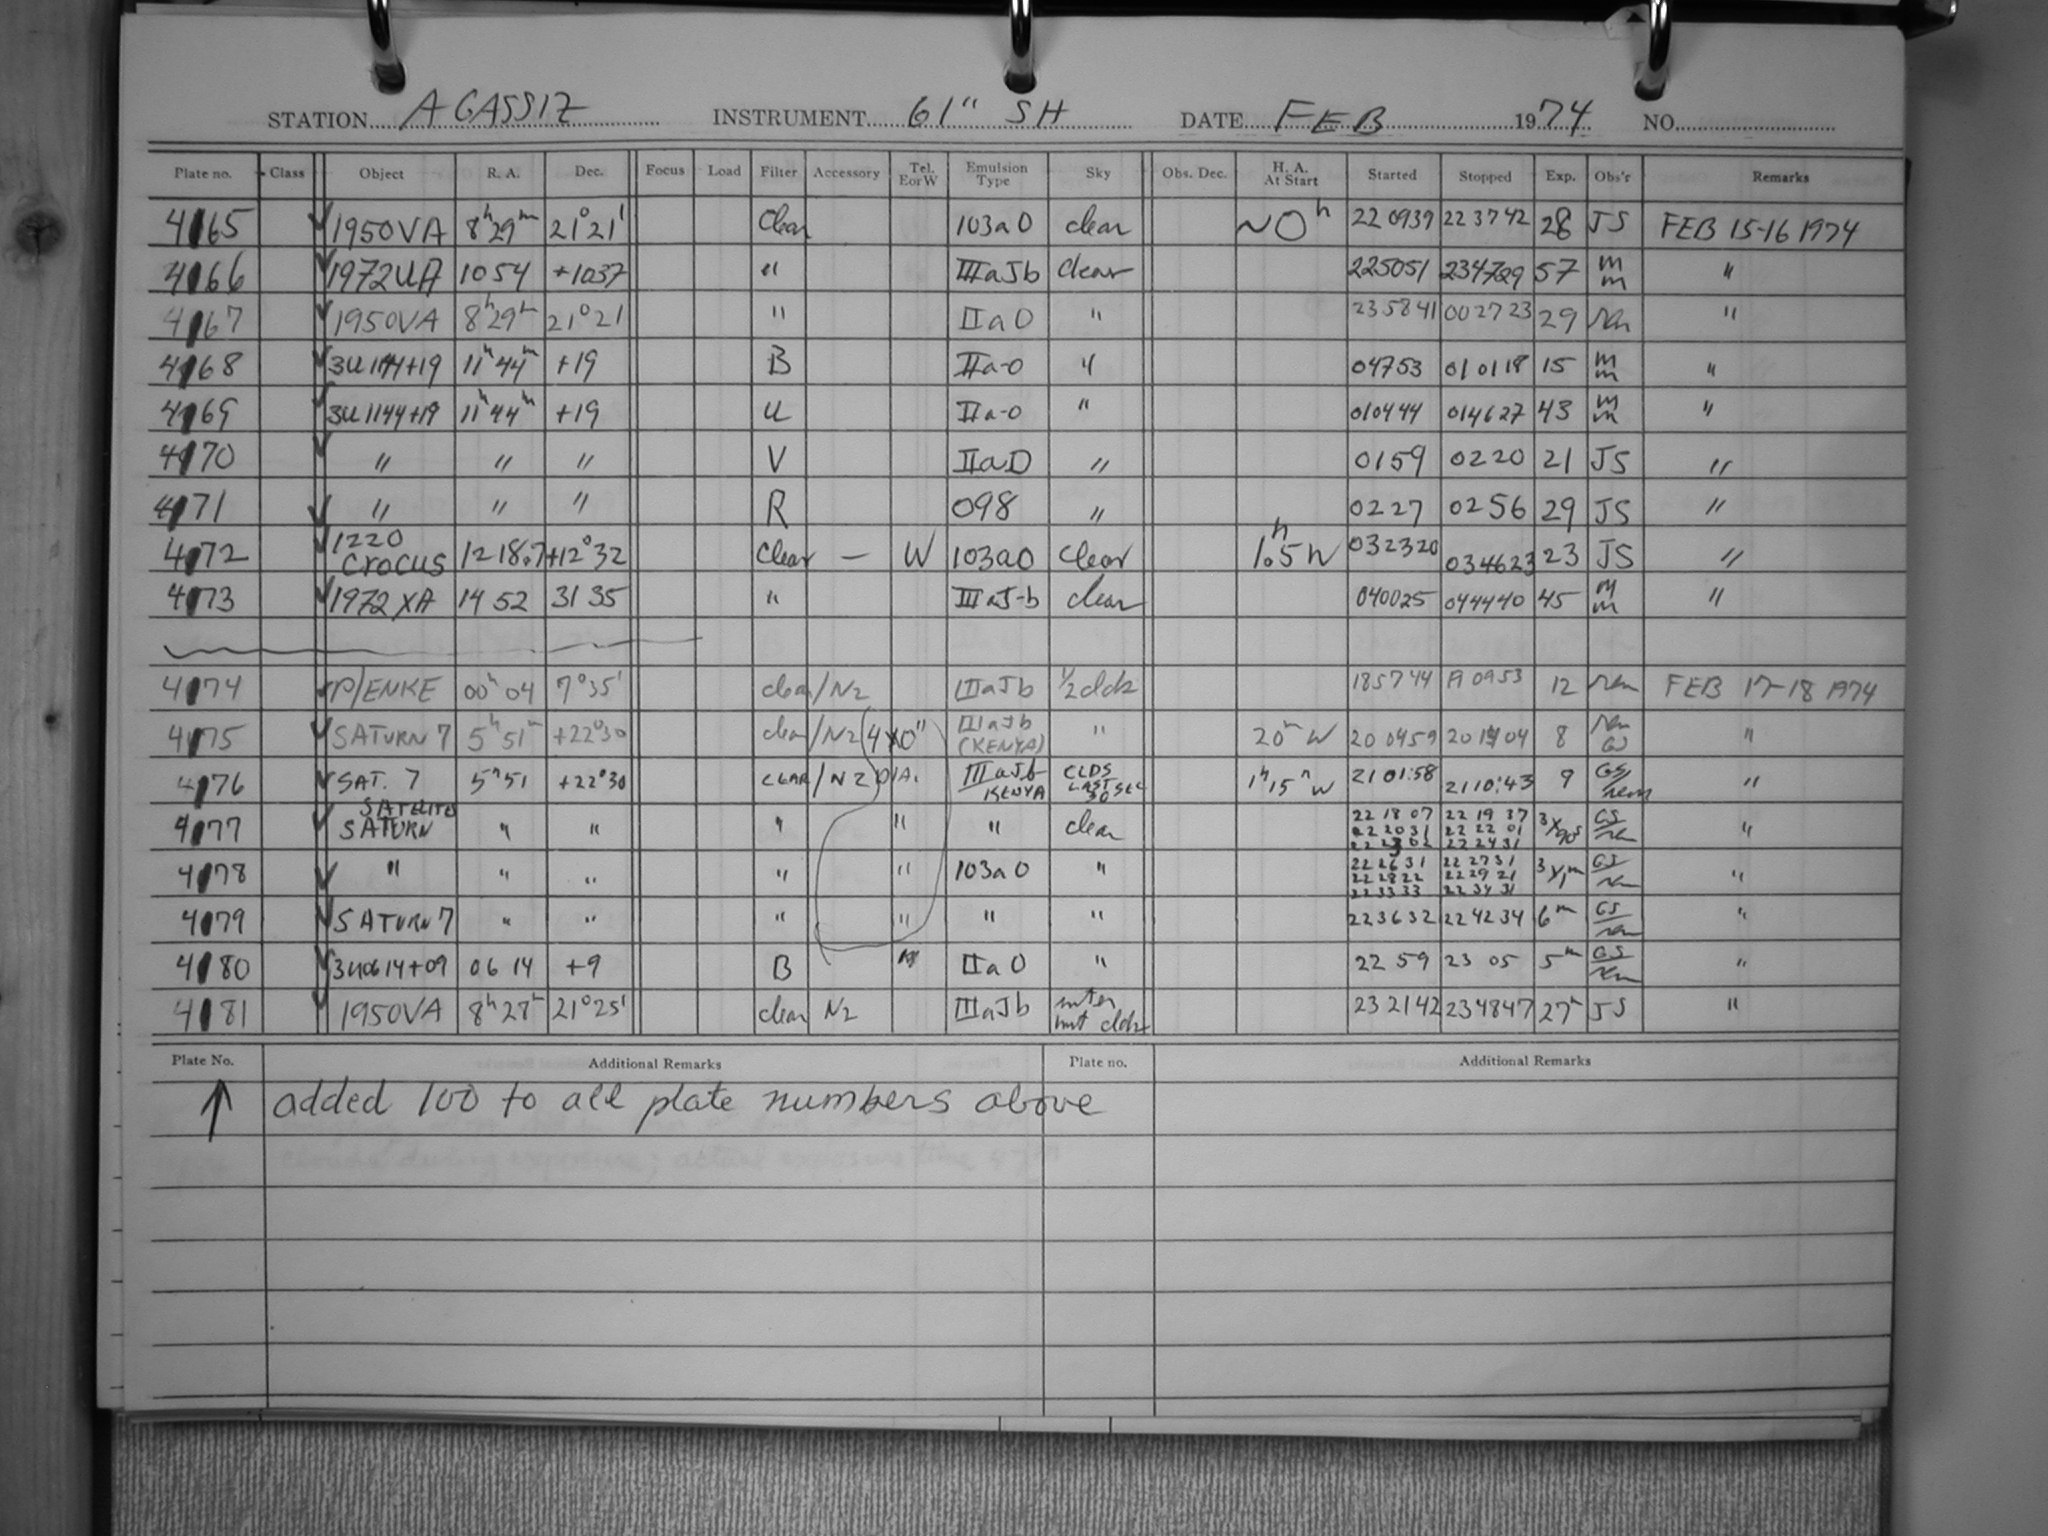 STATION AGASSIZ INSTRUMENT 61" SH DATE FEB 1974 NO.
Plate no. Class Object R. A. Dec. Focus Load Filter Accessory Tel. E or W Emulsion Type Sky Obs. Dec. H. A. At Start Started Stopped Exp. Obs'r Remarks
4165 ✓ 1950VA 8h29m 21°21' Clear 103aO clear ~0h 220939 223742 28 JS FEB 15-16 1974
4166 ✓ 1972UA 10 54 +1037 " IIIaJb clear 225051 234729 57 m m "
4167 ✓ 1950VA 8h29m 21°21 " IIaO " 235841 002723 29 "
4168 ✓ 3U1144+19 11h44m +19 B IIa-O " 04753 010118 15 m m "
4169 ✓ 3U1144+19 11h44m +19 U IIa-O " 010444 014627 43 m m "
4170 ✓ " " " V IIaD " 0159 0220 21 JS "
4171 ✓ " " " R 098 " 0227 0256 29 JS "
4172 ✓ 1220 Crocus 12 18.7 +12°32 Clear — W 103aO clear 1.5h W 032320 034623 23 JS "
4173 ✓ 1972XA 14 52 31 35 " IIIaJ-b clear 040025 044440 45 m m "
4174 ✓ P/ENKE 00h04 7°35' clear/N2 IIIaJb 1/2 cldz 185744 190953 12 FEB 17-18 1974
4175 ✓ SATURN 7 5h51m +22°30 clear/N2 4x10" IIIaJb (KENYA) " 20m W 200459 8 "
4176 ✓ SAT. 7 5h51 +22°30 CLEAR/N2 DIA. IIIaJb KENYA CLDS LAST 30 SEC 1h15m W 2101:58 2110:43 9 GS/ "
4177 ✓ SATELITES SATURN " " " " " clear 22 18 07 22 19 37 3x90s GS "
22 20 31 22 22 01
22 23 02 22 24 31
4178 ✓ " " " " " 103aO " 22 26 31 22 27 31 3x1m GS "
22 28 22 22 29 21
22 33 33 22 34 31
4179 ✓ SATURN 7 " " " " " " 223632 224234 6m GS "
4180 ✓ 3U0614+09 06 14 +9 B IIaO " 22 59 23 05 5m GS "
4181 ✓ 1950VA 8h28m 21°25' clear N2 IIIaJb inter mit cldz 232142 234847 27m JS "
Plate No. Additional Remarks Plate no. Additional Remarks
↑ added 100 to all plate numbers above